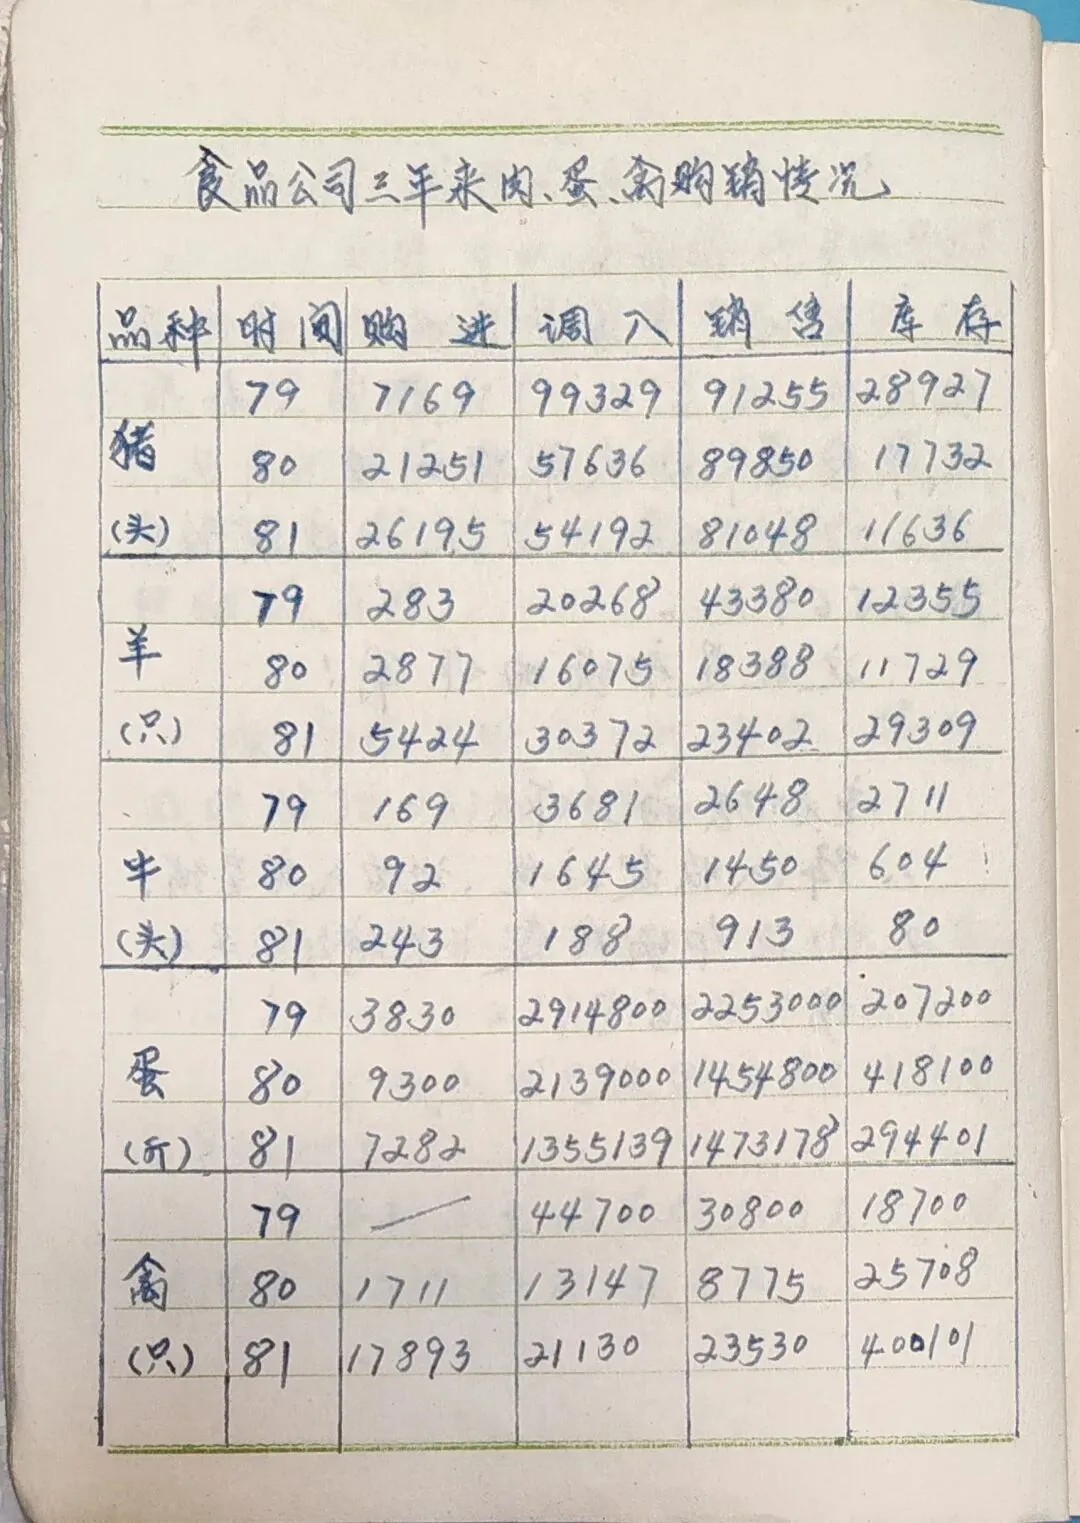 食品公司三年来肉、蛋、禽购销情况
品种 时间 购进 调入 销售 库存
79 7169 99329 91255 28927
猪 80 21251 57636 89850 17732
(头) 81 26195 54192 81048 11636
79 283 20268 43380 12355
羊 80 2877 16075 18388 11729
(只) 81 5424 30372 23402 29309
79 169 3681 2648 2711
牛 80 92 1645 1450 604
(头) 81 243 188 913 80
79 3830 2914800 2253000 207200
蛋 80 9300 2139000 1454800 418100
(斤) 81 7282 1355139 1473178 294401
79 — 44700 30800 18700
禽 80 1711 13147 8775 25708
(只) 81 17893 21130 23530 400101